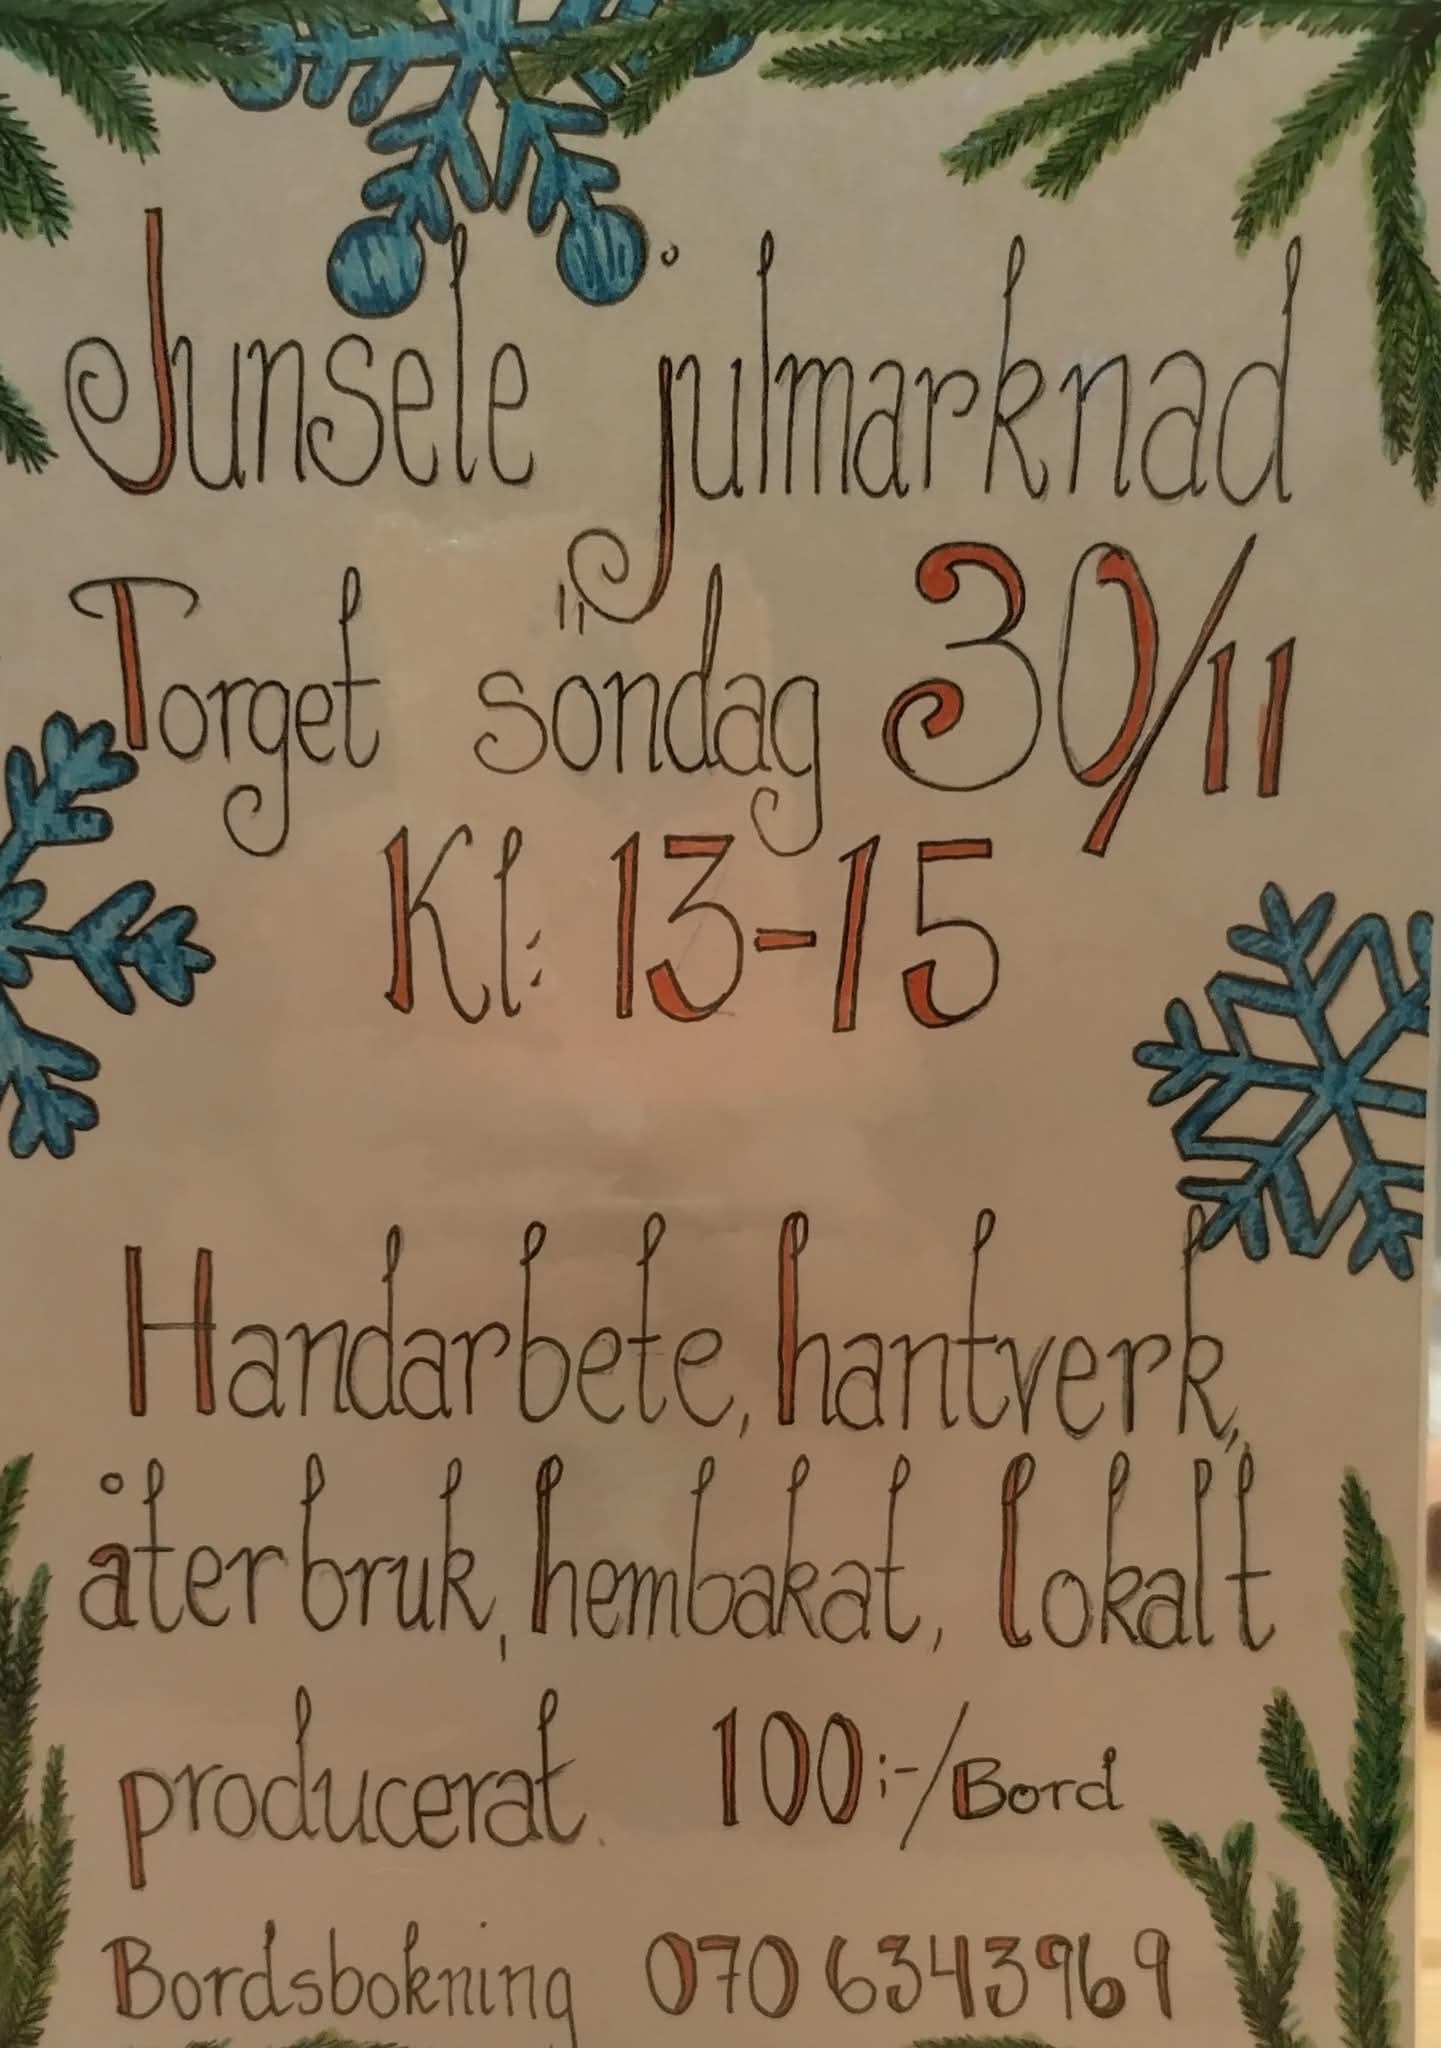 Junsele julmarknad
Torget söndag 30/11
Kl: 13-15
Handarbete, hantverk,
återbruk, hembakat, lokalt
producerat. 100:-/Bord
Bordsbokning 070 6343969